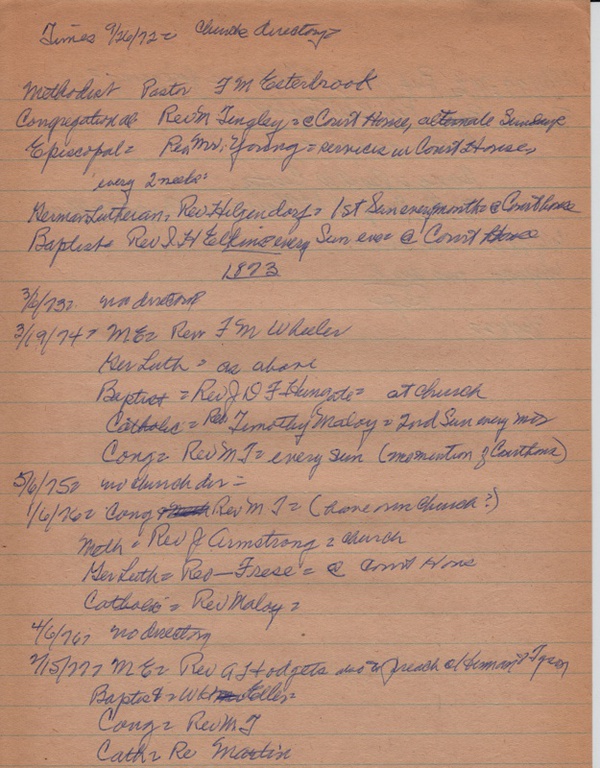 Times 9/26/72 = Church directory =
Methodist Pastor F M Esterbrook
Congregational Rev M Tingley = @ Court House, alternate Sundays
Episcopal = Rev Mr. Young = services in Court House,
every 2 weeks =
German Lutheran, Rev Hilgendorf = 1st Sun every month = @ Courthouse
Baptist Rev I H every Sun eve = @ Court House
1873
3/6/73 = no directory
3/19/74 = ME = Rev F M Wheeler
Ger Luth = as above
Baptist = Rev J D F Hungate = at church
Catholic = Rev Timothy Maloy = 2nd Sun every mo =
Cong = Rev M T = every sun (no mention of Courthouse)
5/6/75 = no church dir =
1/6/76 = Cong Rev M T = (have own church?)
Meth = Rev J Armstrong = church
Ger Luth = Rev — Frese = @ Court House
Catholic = Rev Maloy =
4/6/76 = no directory
2/15/77 = ME = Rev A J Hodgets also preach @ Herman & Tyson
Baptist = W Eller =
Cong = Rev M T
Cath = Re Martin